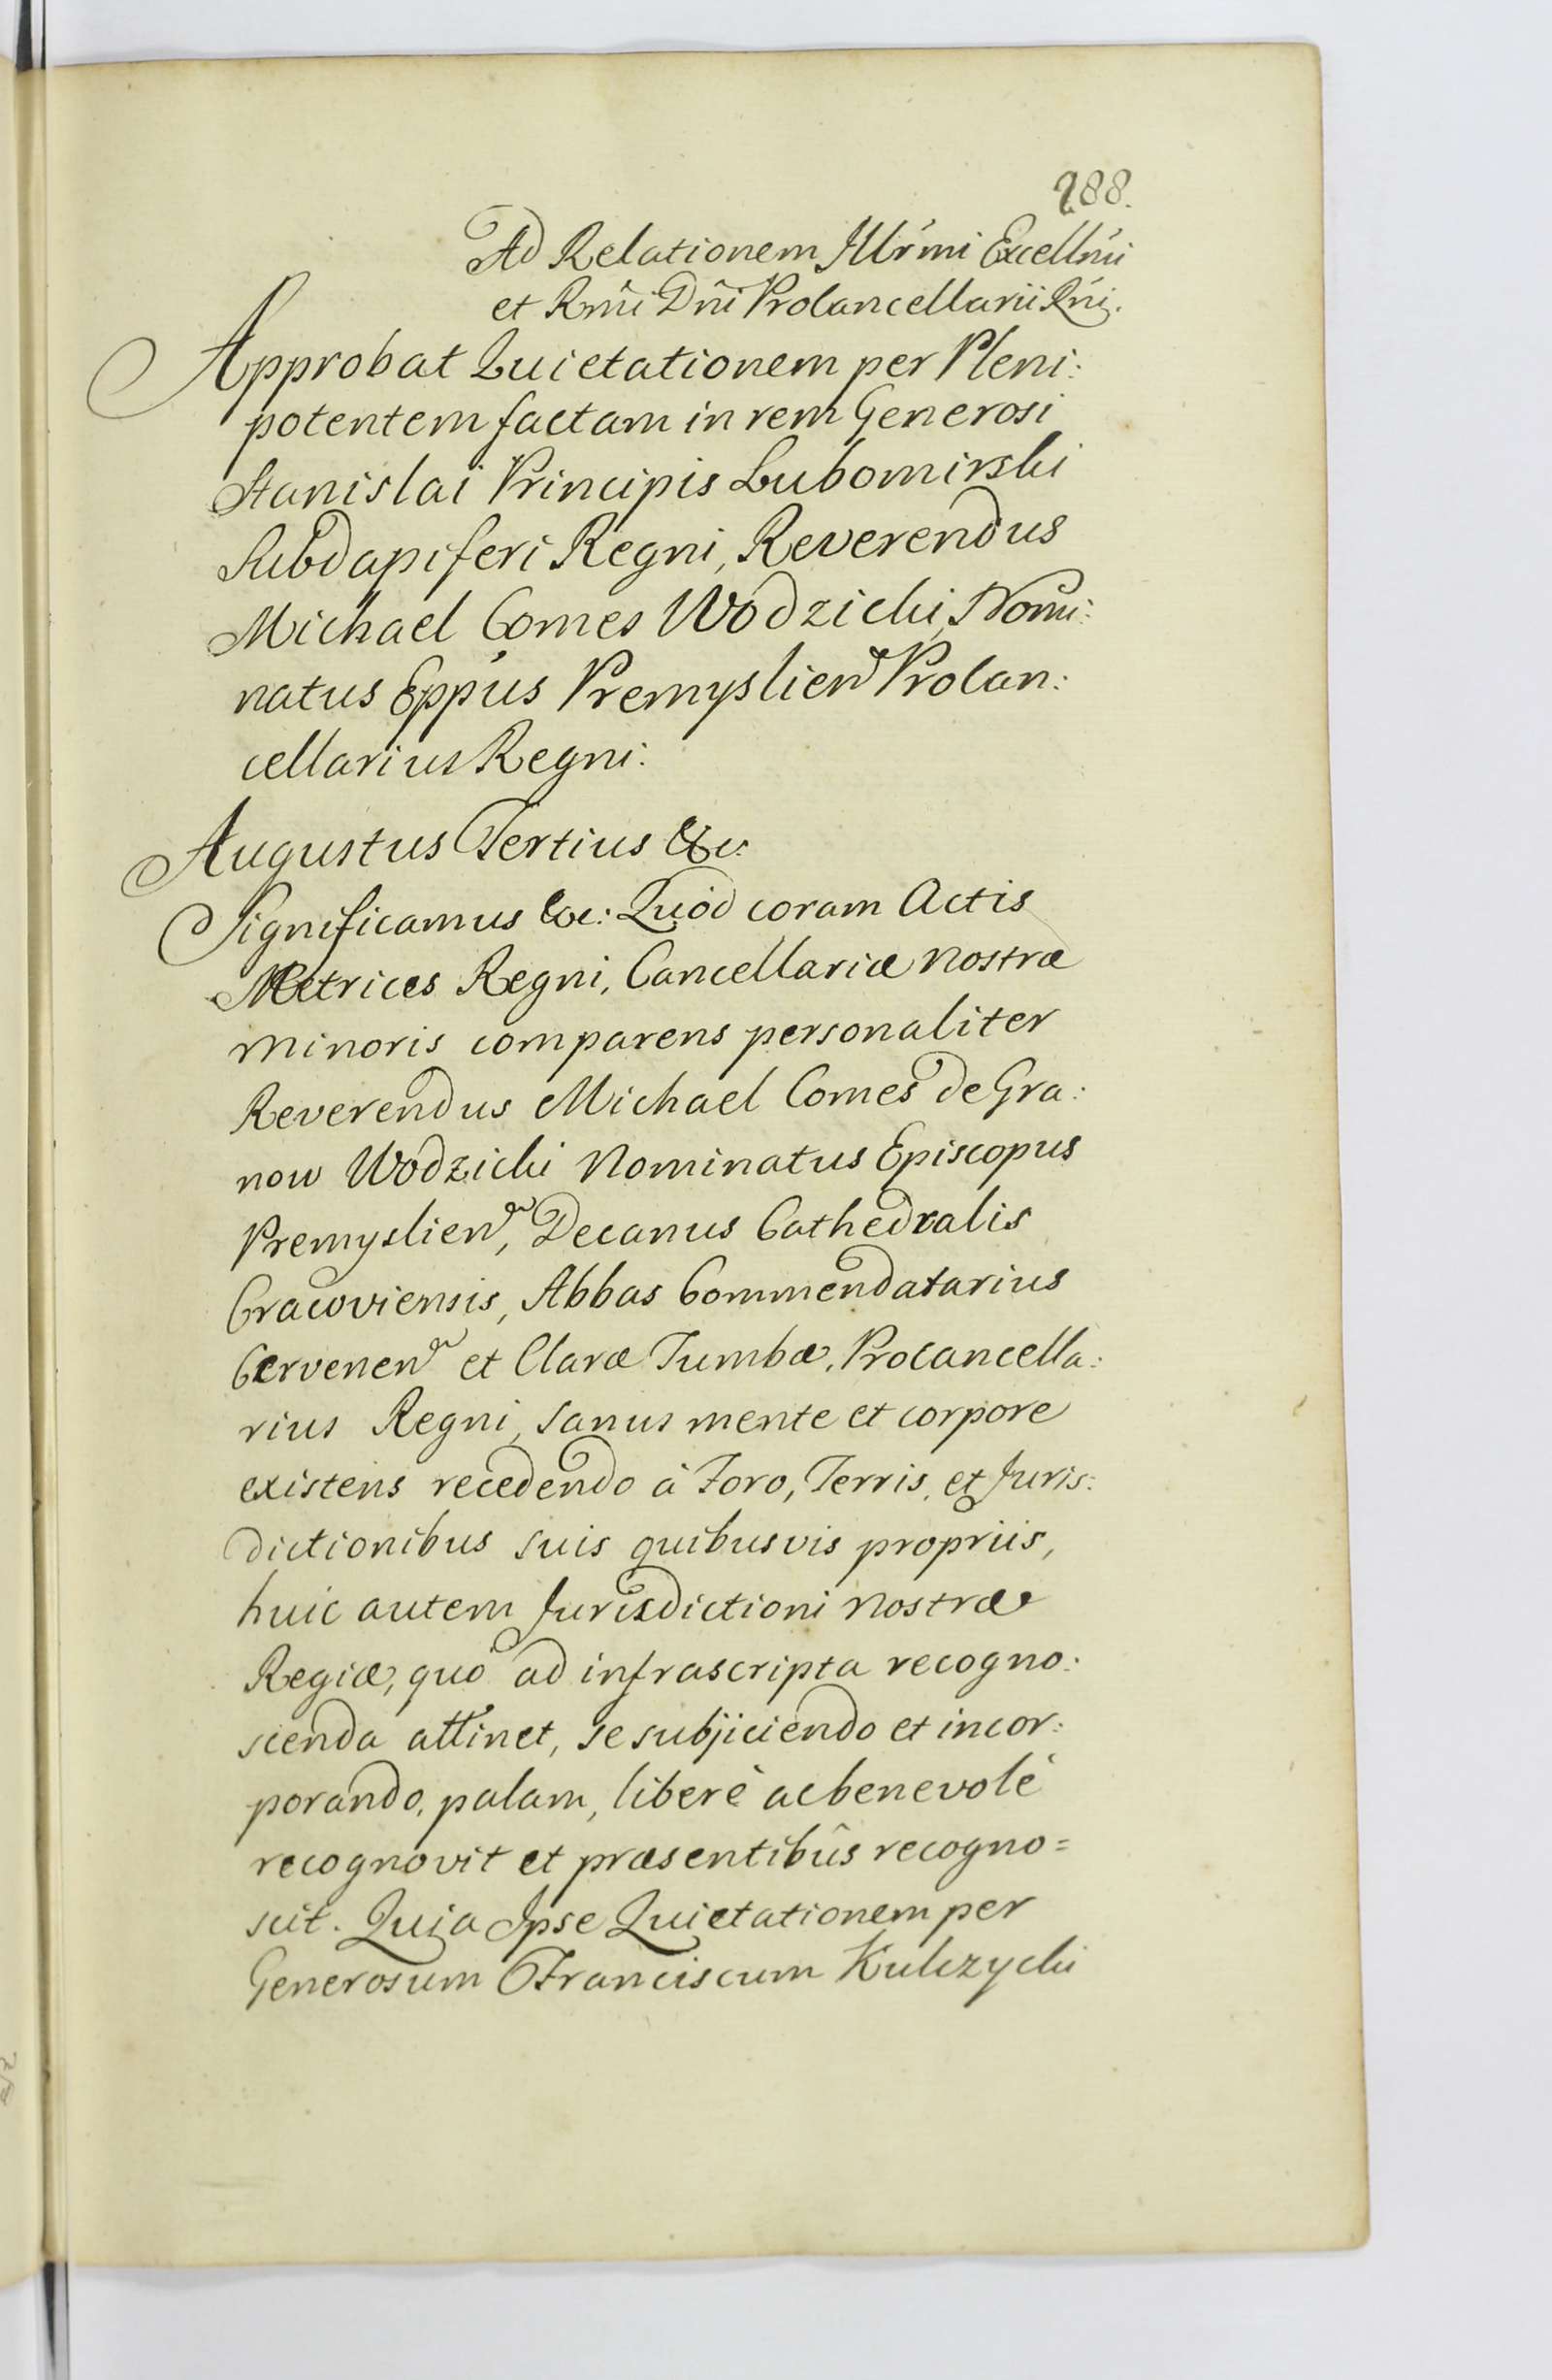 288.
Ad Relationem Illr̃mi Excellm̃i
et Rm̃i Dn̄i Procancellarii Rn̄i.
Approbat Quietationem per Pleni:
potentem factam in rem Generosi
Stanislai Principis Lubomirski
Subdapiferi Regni, Reverendus
Michael Comes Wodzicki, Nomi:
natus Epp̃us Premyslien̄ Procan:
cellarius Regni:
Augustus Tertius &c:
Significamus &c: Quòd coram Actis
Metrices Regni, Cancellariæ nostræ
minoris comparens personaliter
Reverendus Michael Comes de Gra:
now Wodzicki Nominatus Episcopus
Premyslien̄, Decanus Cathedralis
Cracoviensis, Abbas Commendatarius
Cervenen̄ et Claræ Tumbæ, Procancella:
rius Regni, sanus mente et corpore
existens recedendo à Foro, Terris, et Juris:
dictionibus suis quibusvis propriis,
huic autem Jurisdictioni nostræ
Regiæ, quò ad infrascripta recogno:
scenda attinet, se subjiciendo et incor:
porando, palam, liberè ac benevolè
recognovit et præsentibûs recogno=
scit. Quia Ipse Quietationem per
Generosum Franciscum Kulczycki